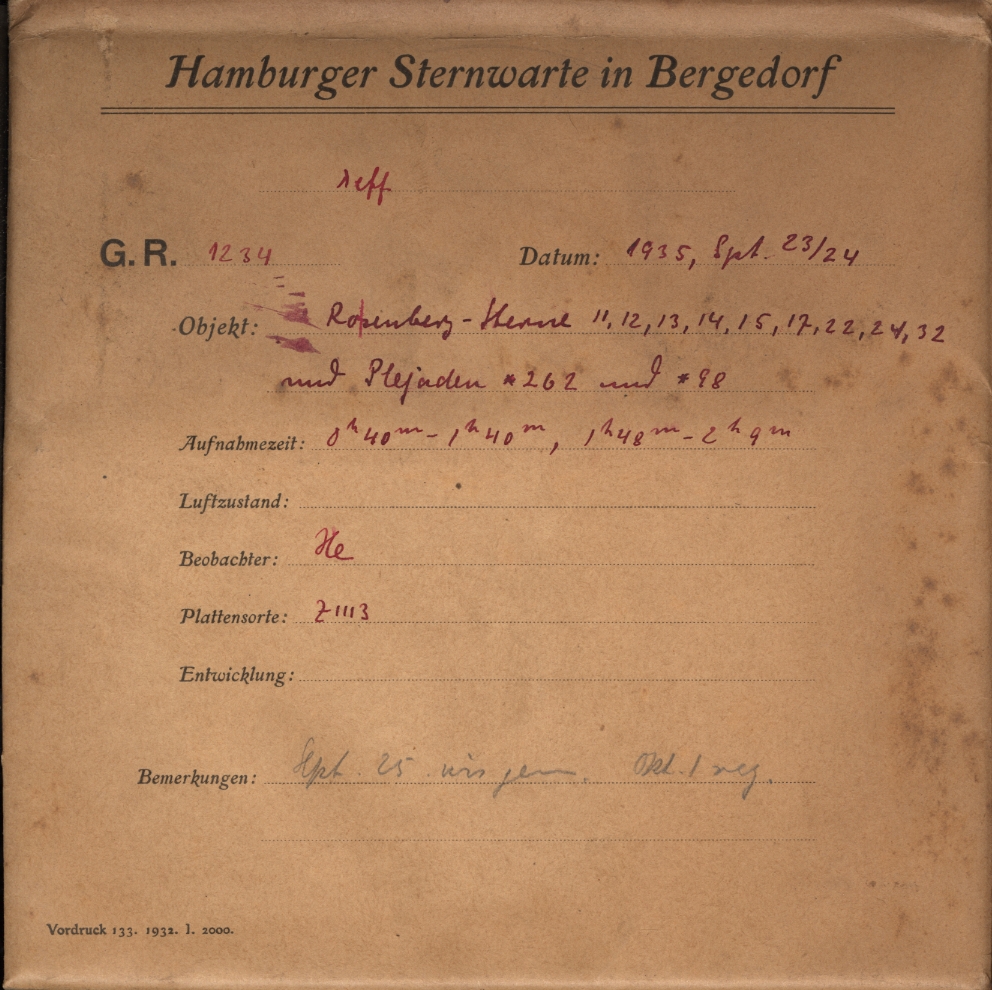 Hamburger Sternwarte in Bergedorf
λeff
G. R. 1234 Datum: 1935, Spt. 23/24
Objekt: Rosenberg-Sterne 11, 12, 13, 14, 15, 17, 22, 24, 32
und Plejaden *262 und *98
Aufnahmezeit: 0h40m - 1h40m, 1h48m - 2h9m
Luftzustand:
Beobachter: He
Plattensorte: Z1113
Entwicklung:
Bemerkungen: Spt. 25 Okt. 1
Vordruck 133. 1932. I. 2000.